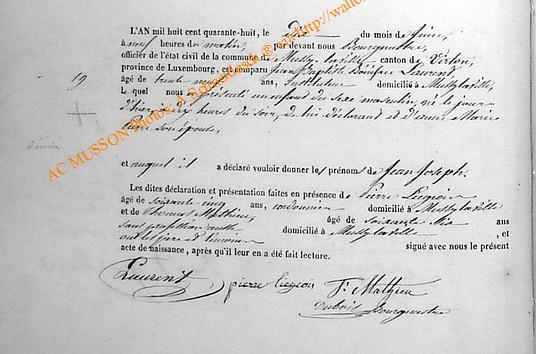 L'AN mil huit cent quarante-huit, le du mois de juin,
à neuf heures du matin, par devant nous Bourgmestre,
officier de l'état civil de la commune de Mussy-la-ville canton de Virton,
province de Luxembourg, est comparu Jean Baptiste Laurent
19
âgé de trente ans, domicilié à Mussy-la-ville,
Le quel nous a présenté un enfant du sexe masculin, né le jour
d'hier à dix heures du soir, de lui déclarant et d'anne Marie
son épouse,
et auquel il a déclaré vouloir donner les prénoms de Jean Joseph.
Les dites déclaration et présentation faites en présence de Pierre Liegeois
âgé de soixante cinq ans, cordonnier domicilié à Mussy-la-ville
et de Thomas Mathieu, âgé de soixante ans
sans profession domicilié à Mussy-la-ville, et
ont le père et témoins signé avec nous le présent
acte de naissance, après qu'il leur en a été fait lecture.
Laurent pierre Liegeois Th Mathieu
Bourgmestre
AC MUSSON Photos: A Schleich